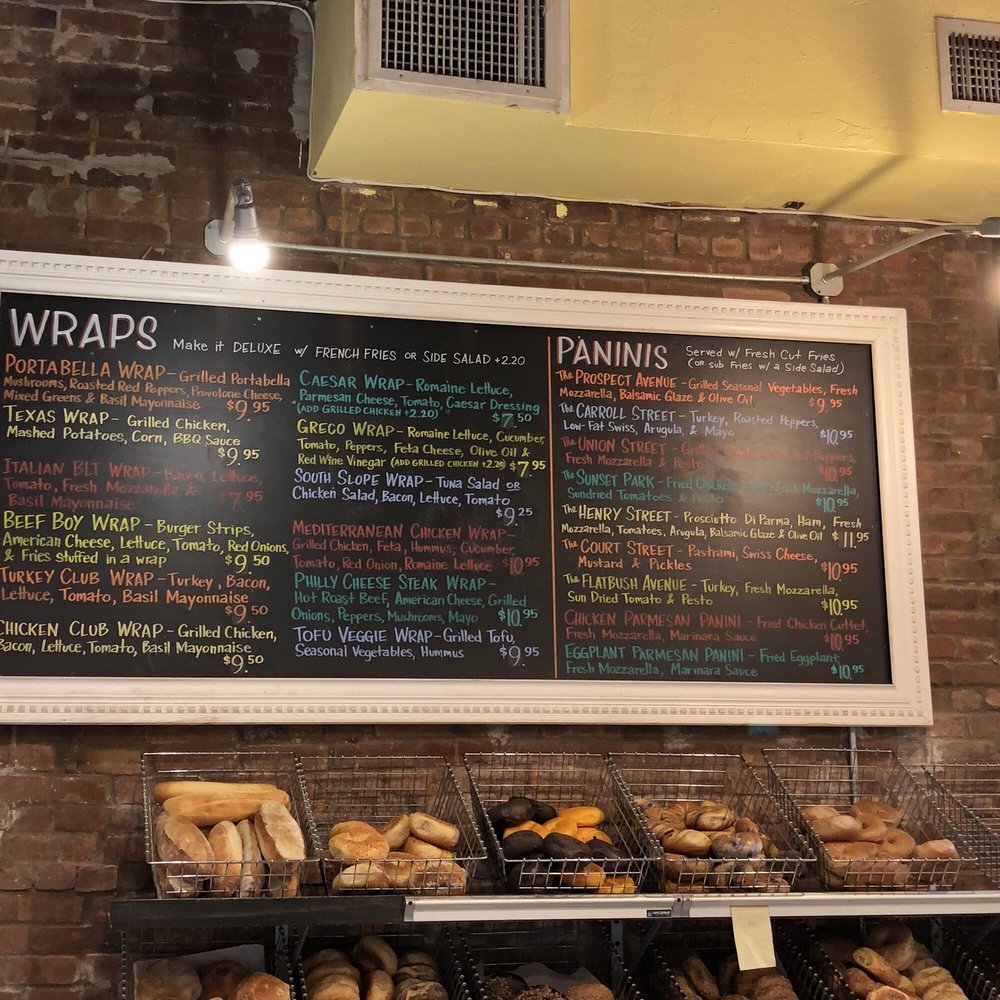 WRAPS Make it DELUXE w/ FRENCH FRIES OR SIDE SALAD +2.20
PORTABELLA WRAP - Grilled Portabella
Mushrooms, Roasted Red Peppers, Provolone Cheese,
Mixed Greens & Basil Mayonnaise $9.95
TEXAS WRAP - Grilled Chicken,
Mashed Potatoes, Corn, BBQ Sauce
$9.95
ITALIAN BLT WRAP - Bacon, Lettuce,
Tomato, Fresh Mozzarella &
Basil Mayonnaise $7.95
BEEF BOY WRAP - Burger Strips,
American Cheese, Lettuce, Tomato, Red Onions,
& Fries stuffed in a wrap $9.50
TURKEY CLUB WRAP - Turkey, Bacon,
Lettuce, Tomato, Basil Mayonnaise
$9.50
CHICKEN CLUB WRAP - Grilled Chicken,
Bacon, Lettuce, Tomato, Basil Mayonnaise
$9.50
CAESAR WRAP - Romaine Lettuce,
Parmesan Cheese, Tomato, Caesar Dressing
(ADD GRILLED CHICKEN +2.20) $7.50
GRECO WRAP - Romaine Lettuce, Cucumber,
Tomato, Peppers, Feta Cheese, Olive Oil &
Red Wine Vinegar (ADD GRILLED CHICKEN +2.20) $7.95
SOUTH SLOPE WRAP - Tuna Salad OR
Chicken Salad, Bacon, Lettuce, Tomato
$9.25
MEDITERRANEAN CHICKEN WRAP -
Grilled Chicken, Feta, Hummus, Cucumber,
Tomato, Red Onion, Romaine Lettuce $10.95
PHILLY CHEESE STEAK WRAP -
Hot Roast Beef, American Cheese, Grilled
Onions, Peppers, Mushrooms, Mayo $10.95
TOFU VEGGIE WRAP - Grilled Tofu,
Seasonal Vegetables, Hummus $9.95
PANINIS Served w/ Fresh Cut Fries
(OR sub Fries w/ a Side Salad)
The PROSPECT AVENUE - Grilled Seasonal Vegetables, Fresh
Mozzarella, Balsamic Glaze & Olive Oil $9.95
The CARROLL STREET - Turkey, Roasted Peppers,
Low-Fat Swiss, Arugula, & Mayo $10.95
The UNION STREET - Grilled Peppers,
Fresh Mozzarella & Pesto $10.95
The SUNSET PARK - Fried Chicken Fresh Mozzarella,
Sundried Tomatoes & Pesto $10.95
The HENRY STREET - Prosciutto Di Parma, Ham, Fresh
Mozzarella, Tomatoes, Arugula, Balsamic Glaze & Olive Oil $11.95
The COURT STREET - Pastrami, Swiss Cheese,
Mustard & Pickles $10.95
The FLATBUSH AVENUE - Turkey, Fresh Mozzarella,
Sun Dried Tomato & Pesto $10.95
CHICKEN PARMESAN PANINI - Fried Chicken Cutlet,
Fresh Mozzarella, Marinara Sauce $10.95
EGGPLANT PARMESAN PANINI - Fried Eggplant,
Fresh Mozzarella, Marinara Sauce $10.95